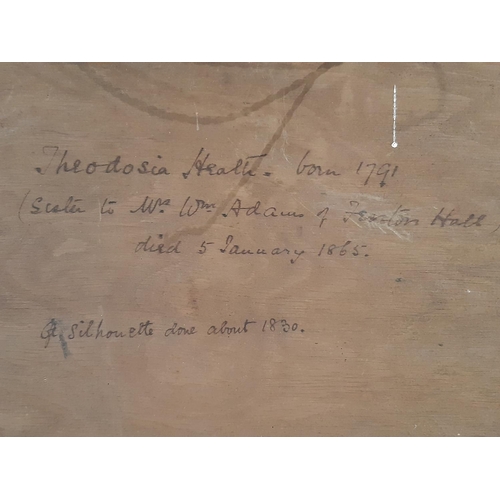 Theodosia Heath. born 1791
(Sister to Mrs Wm Adams of Fenton Hall,
died 5 January 1865.
A silhouette done about 1830.